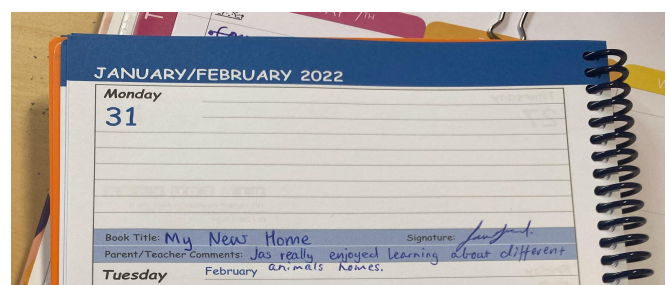 JANUARY/FEBRUARY 2022
Monday
31
Book Title: My New Home Signature:
Parent/Teacher Comments: Jas really enjoyed learning about different
animals homes.
Tuesday February